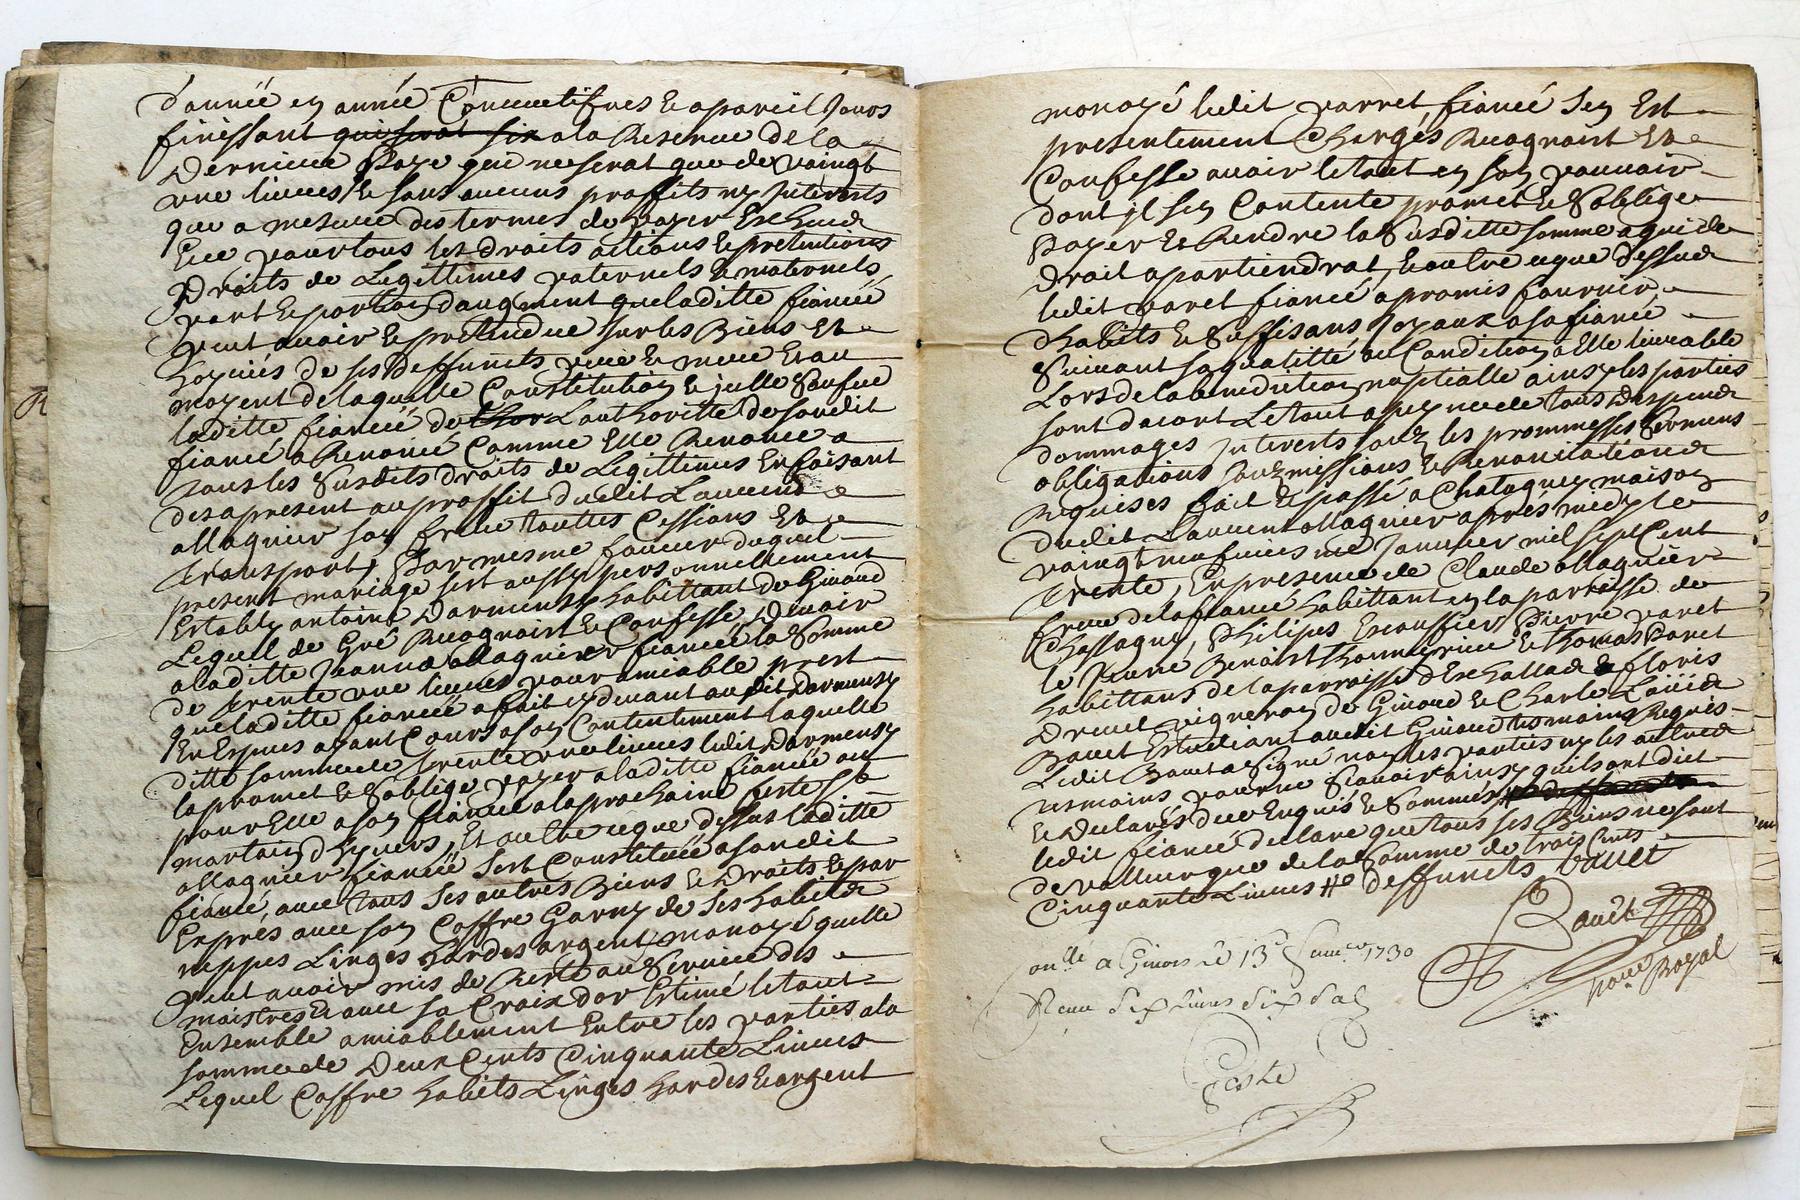 d'année en année Consecutifves & apareil Jours
finissant quiserat six ala Reserve de la
Derniere Paye qui neserat que de vaingt
une livres & sans aucuns proffits ny Interests
que a mesure des termes de payer Escheus
Ece pour tous les droits actions & pretentions
Droits de Legittimes paternels & maternels
part & portion daugment que laditte fiancée
peut avoir & pretendre sur les Biens Et
hoyries de ses deffuncts pere & mere Et au
moyent de laquelle Constitution & icelle
laditte fiancée de Lauthoritté de sondit
fiancé a Renoncé Comme Elle Renonce a
tous les Susdits droits de Legittimes En faisant
des apresent au proffit dudit Laurend
allagnier son frere touttes Cessions Et
transport, Par mesme faveur duquel
present mariage sest aussy personnellement
Estably antoine Darmensy habittant de Givord
Lequel de Gré Recognoist & Confesse Devoir
a laditte Jeanne allagnier fiancée la Somme
de trente une livres pour amiable prest
que laditte fiancée a fait cydevant audit Darmensy
En Especes ayant Cours a son Contentement laquelle
ditte somme de trente une livres ledit Darmensy
la promet & Soblige payer a laditte fiancée ou
pour Elle a son fiancé a la prochaine feste St
martain d'hyvers, Et outre ceque dessus laditte
allagnier fiancée Sest Constituée a sondit
fiancé, avec tous ses autres Biens & Droits & par
Expres avec son Coffre Garny de ses habits
nippes Linges hardes argent monoyé quelle
peut avoir mis de Reste au Service des
maistres & avec sa Croix dor Estimé le tout
Ensemble amiablement Entre les parties ala
somme de Deux Cents Cinquante Livres
Lequel Coffre habits Linges hardes & argent
monoyé ledit parret fiancé Sen Est
presentement Chargés Recognoist Et
Confesse avoir letout en son pouvoir
dont jl sen Contente promet & Soblige
Payer & Rendre la Susditte somme a qui de
droit apartiendrat, & outre ceque dessus
ledit paret fiancé a promis fournir
dhabits & Suffisans Joyaux a sa fiancé
Suivant sa qualitté ou Condition a Elle livrable
Lors de la benediction nuptialle ainsy les parties
sont dacort Le tout a peyne de tous despends
dommages Interests soubz les prommesses Sermens
obligations soubzmissions & Renonciations
Requises fait & passé a Chatagny maison
dudit Laurent allagnier apres midy le
vaingt neufvieseme Janvier mil sept Cent
trente, En presence de Claude allagnier
frere de la fiancé habittant en la parroisse de
Chassagny, Philipes Escouffier Pierre paret
le Jeune Benoist & Thomas Paret
habittans de la parroisse d'Eschallad & floris
Drevet vigneron de Givord & Charle Loüis
Bouet Estudiant audit Givord tesmoins Requis
Ledit Bouet a Signé non les parties ny les autres
tesmoins pour ne Scavoir ainsy quils ont dict
& declarés de ce Enquis & Sommes
ledit fiancé declare que tous ses Biens ne sont
de valleur que de la Somme de trois Cents
Cinquante Livres deffuncts vault
Bouët
Royal
a Givors le 13e 1730
Reçu Six Livres dix Sols